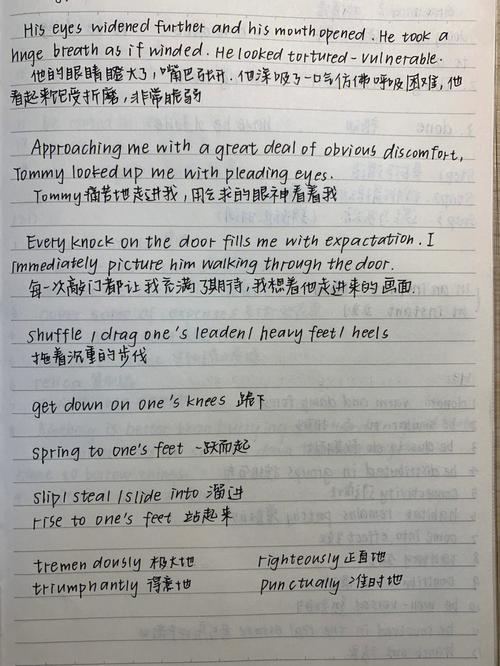 His eyes widened further and his mouth opened. He took a
huge breath as if winded. He looked tortured - vulnerable.
他的眼睛瞪大了,嘴巴张开.他深吸了一口气仿佛呼吸困难,他
看起来饱受折磨,非常脆弱
Approaching me with a great deal of obvious discomfort,
Tommy looked up me with pleading eyes.
Tommy痛苦地走进我,用乞求的眼神看着我
Every knock on the door fills me with expactation. I
immediately picture him walking through the door.
每一次敲门都让我充满了期待,我想着他走进来的画面.
shuffle / drag one's leaden / heavy feet / heels
拖着沉重的步伐
get down on one's knees 跪下
spring to one's feet 一跃而起
slip / steal / slide into 溜进
rise to one's feet 站起来
tremendously 极大地 righteously 正直地
triumphantly 得意地 punctually 准时地